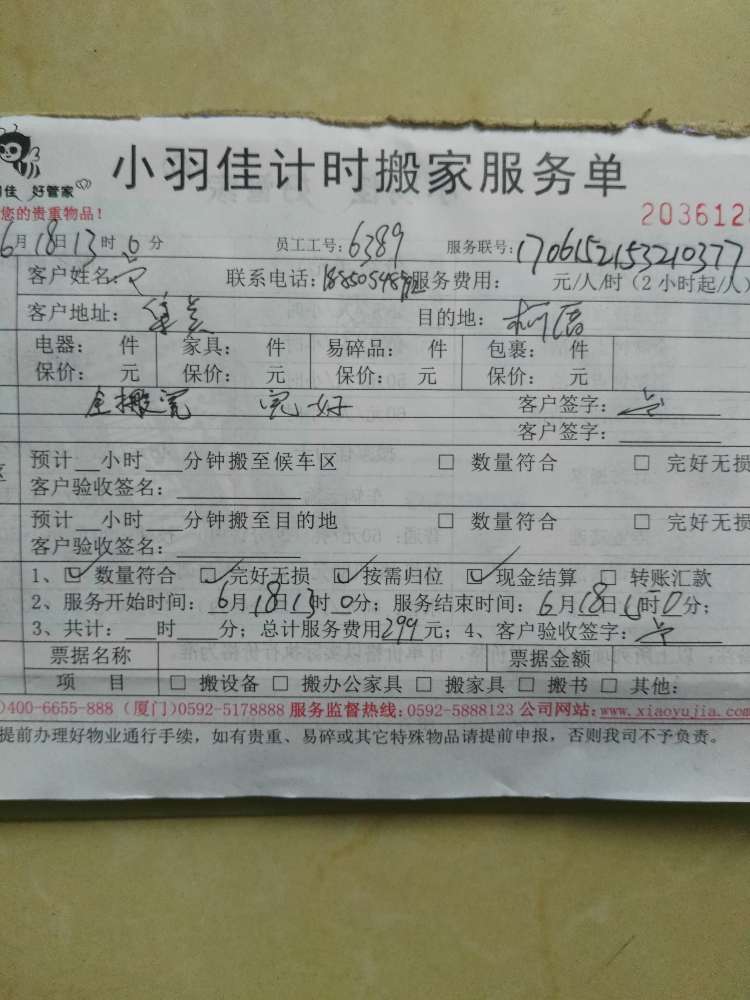 小羽佳计时搬家服务单
佳 好管家
您的贵重物品!
203612
6月18日13时0分 员工工号:6389 服务联号:1706152153210377
客户姓名: 联系电话: 服务费用: 元/人/时(2小时起/人)
客户地址:集美 目的地:
电器: 件 家具: 件 易碎品: 件 包裹: 件
保价: 元 保价: 元 保价: 元 保价: 元
全搬完 完好 客户签字:
客户签字:
区 预计__小时___分钟搬至候车区 □ 数量符合 □ 完好无损
客户验收签名:
预计__小时___分钟搬至目的地 □ 数量符合 □ 完好无损
客户验收签名:
1、☑ 数量符合 ☑ 完好无损 ☑ 按需归位 ☑ 现金结算 □ 转账汇款
2、服务开始时间:6月18日13时0分;服务结束时间:6月18日15时0分;
3、共计:___时___分;总计服务费用299元;4、客户验收签字:
票据名称 票据金额
项 目 □ 搬设备 □ 搬办公家具 □ 搬家具 □ 搬书 □ 其他:
)400-6655-888 (厦门)0592-5178888 服务监督热线:0592-5888123 公司网站:www.xiaoyujia.com
提前办理好物业通行手续,如有贵重、易碎或其它特殊物品请提前申报,否则我司不予负责。